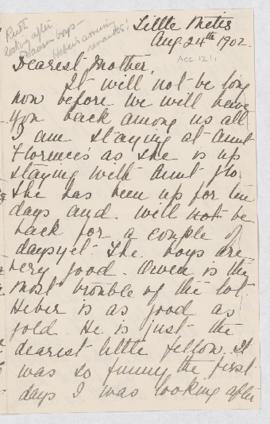 Ruth
looks after
Dawson boys -
Heber's amusing
remarks!
Little Metis
Aug 24th 1902.
Acc 1211
Dearest Mother,
It will not be long
now before we will have
you back among us all
I am staying at Aunt
Florence's as she is up
staying with Aunt Flo.
She has been up for ten
days and will not be
back for a couple of
days yet. The boys are
very good. Owen is the
most trouble of the lot.
Heber is as good as
gold. He is just the
dearest little fellow. It
was so funny the first
days I was looking after